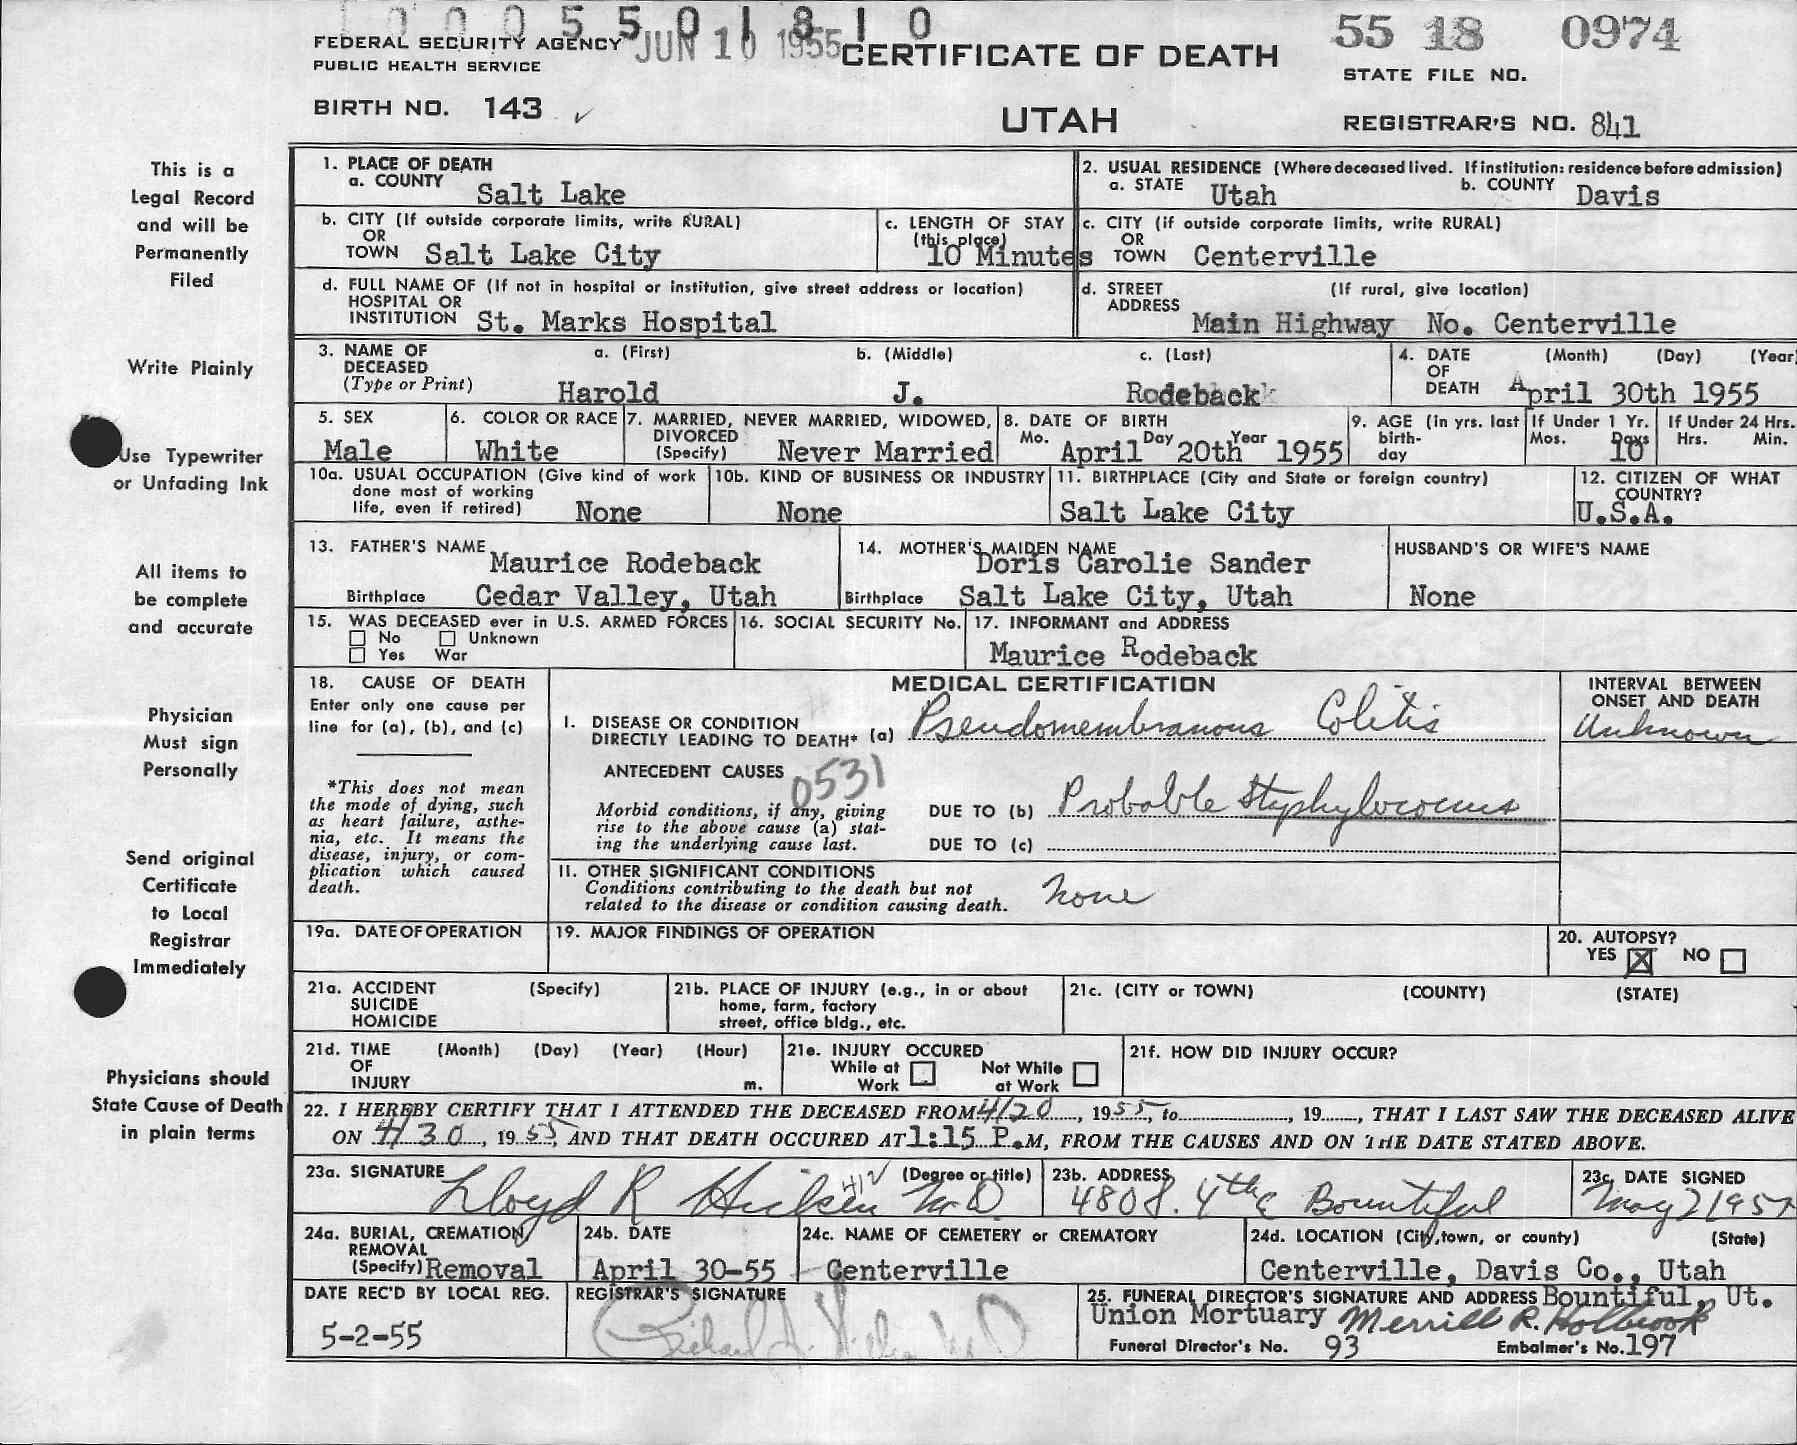 1 0 0 0 5 5 0 1 8 1 0
JUN 10 1955
55 18 0974
FEDERAL SECURITY AGENCY
PUBLIC HEALTH SERVICE
CERTIFICATE OF DEATH
STATE FILE NO.
BIRTH NO. 143 ✓
UTAH
REGISTRAR'S NO. 841
This is a
Legal Record
and will be
Permanently
Filed
Write Plainly
Use Typewriter
or Unfading Ink
All items to
be complete
and accurate
Physician
Must sign
Personally
Send original
Certificate
to Local
Registrar
Immediately
Physicians should
State Cause of Death
in plain terms
1. PLACE OF DEATH
a. COUNTY Salt Lake
2. USUAL RESIDENCE (Where deceased lived. If institution: residence before admission)
a. STATE Utah b. COUNTY Davis
b. CITY (If outside corporate limits, write RURAL)
OR
TOWN Salt Lake City
c. LENGTH OF STAY
(this place)
10 Minutes
c. CITY (if outside corporate limits, write RURAL)
OR
TOWN Centerville
d. FULL NAME OF (If not in hospital or institution, give street address or location)
HOSPITAL OR
INSTITUTION St. Marks Hospital
d. STREET (If rural, give location)
ADDRESS
Main Highway No. Centerville
3. NAME OF DECEASED
(Type or Print)
a. (First) b. (Middle) c. (Last)
Harold J. Rodeback
4. DATE OF DEATH (Month) (Day) (Year)
April 30th 1955
5. SEX
Male
6. COLOR OR RACE
White
7. MARRIED, NEVER MARRIED, WIDOWED,
DIVORCED
(Specify) Never Married
8. DATE OF BIRTH
Mo. Day Year
April 20th 1955
9. AGE (In yrs. last
birth-
day
If Under 1 Yr.
Mos. Days
10
If Under 24 Hrs.
Hrs. Min.
10a. USUAL OCCUPATION (Give kind of work
done most of working
life, even if retired) None
10b. KIND OF BUSINESS OR INDUSTRY
None
11. BIRTHPLACE (City and State or foreign country)
Salt Lake City
12. CITIZEN OF WHAT
COUNTRY?
U.S.A.
13. FATHER'S NAME Maurice Rodeback
Birthplace Cedar Valley, Utah
14. MOTHER'S MAIDEN NAME
Doris Carolie Sander
Birthplace Salt Lake City, Utah
HUSBAND'S OR WIFE'S NAME
None
15. WAS DECEASED ever in U.S. ARMED FORCES
No Unknown
Yes War
16. SOCIAL SECURITY No.
17. INFORMANT and ADDRESS
Maurice Rodeback
18. CAUSE OF DEATH
Enter only one cause per
line for (a), (b), and (c)
*This does not mean
the mode of dying, such
as heart failure, asthe-
nia, etc. It means the
disease, injury, or com-
plication which caused
death.
MEDICAL CERTIFICATION
I. DISEASE OR CONDITION
DIRECTLY LEADING TO DEATH* (a) Pseudomembranous Colitis
ANTECEDENT CAUSES 0531
Morbid conditions, if any, giving
rise to the above cause (a) stat-
ing the underlying cause last.
DUE TO (b) Probable Staphylococcus
DUE TO (c)
II. OTHER SIGNIFICANT CONDITIONS
Conditions contributing to the death but not
related to the disease or condition causing death.
None
INTERVAL BETWEEN
ONSET AND DEATH
Unknown
19a. DATE OF OPERATION
19. MAJOR FINDINGS OF OPERATION
20. AUTOPSY?
YES X NO
21a. ACCIDENT (Specify)
SUICIDE
HOMICIDE
21b. PLACE OF INJURY (e.g., in or about
home, farm, factory
street, office bldg., etc.
21c. (CITY or TOWN) (COUNTY) (STATE)
21d. TIME (Month) (Day) (Year) (Hour)
OF
INJURY m.
21e. INJURY OCCURED
While at Work Not While at Work
21f. HOW DID INJURY OCCUR?
22. I HEREBY CERTIFY THAT I ATTENDED THE DECEASED FROM 4/20, 1955, to , 19 , THAT I LAST SAW THE DECEASED ALIVE
ON 4/30, 1955, AND THAT DEATH OCCURED AT 1:15 P.M, FROM THE CAUSES AND ON THE DATE STATED ABOVE.
23a. SIGNATURE (Degree or title)
Lloyd R Hicken M.D.
23b. ADDRESS
480 S. 4th E Bountiful
23c. DATE SIGNED
May 2 1955
24a. BURIAL, CREMATION,
REMOVAL
(Specify) Removal
24b. DATE
April 30-55
24c. NAME OF CEMETERY or CREMATORY
Centerville
24d. LOCATION (City, town, or county) (State)
Centerville, Davis Co., Utah
DATE REC'D BY LOCAL REG.
5-2-55
REGISTRAR'S SIGNATURE
25. FUNERAL DIRECTOR'S SIGNATURE AND ADDRESS Bountiful, Ut.
Union Mortuary Merrill R. Holbrook
Funeral Director's No. 93 Embalmer's No. 197